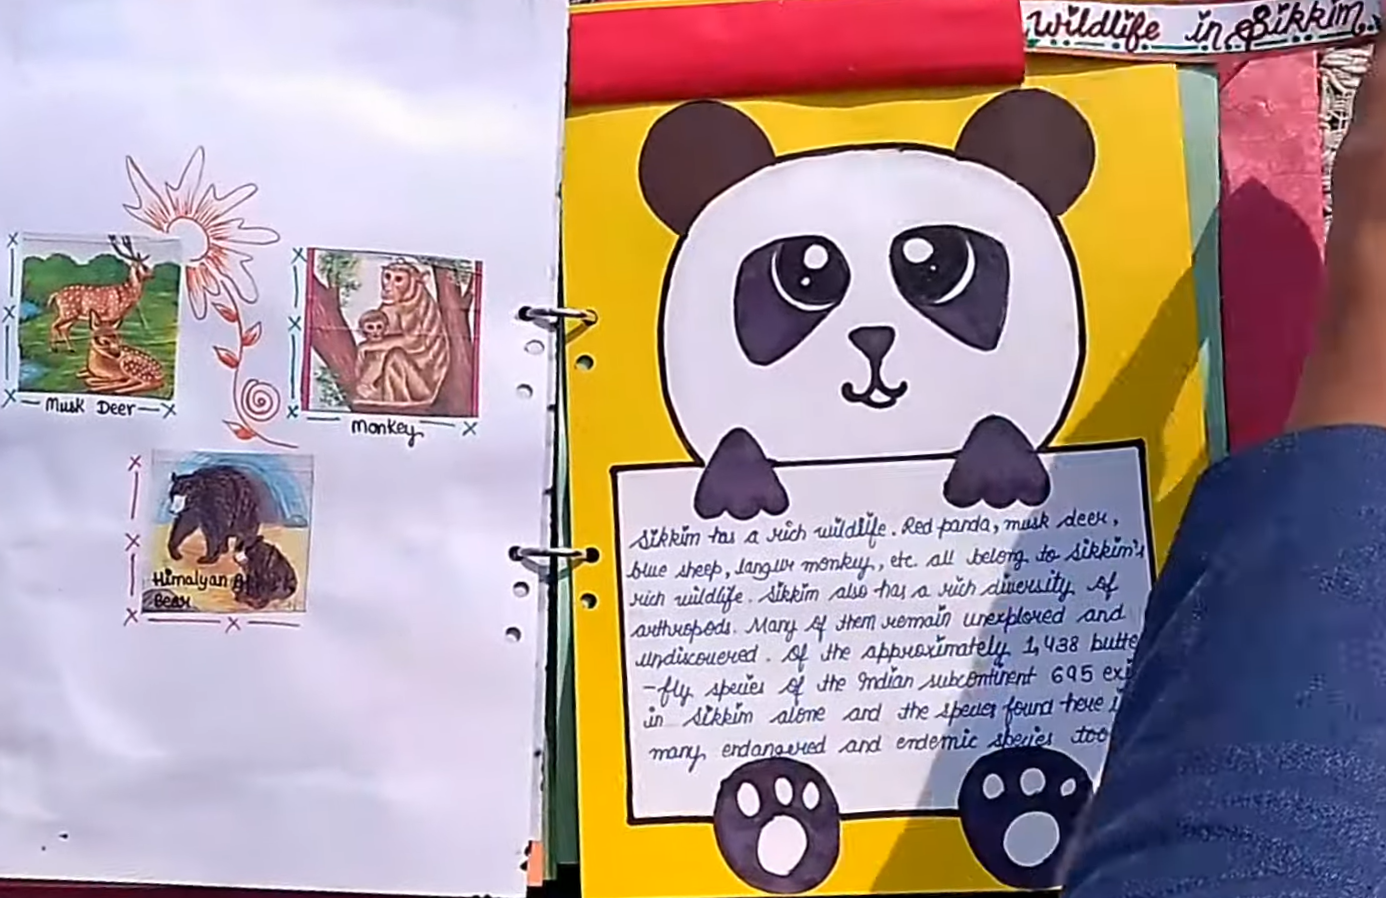 Wildlife in Sikkim
Musk Deer
Monkey
Himalyan
Bear
Sikkim has a rich wildlife. Red panda, musk deer,
blue sheep, langur monkey, etc. all belong to Sikkim's
rich wildlife. Sikkim also has a rich diversity of
arthropods. Many of them remain unexplored and
undiscovered. Of the approximately 1,438 butte
-fly species of the Indian subcontinent 695
in Sikkim alone and the species found here
many endangered and endemic species too